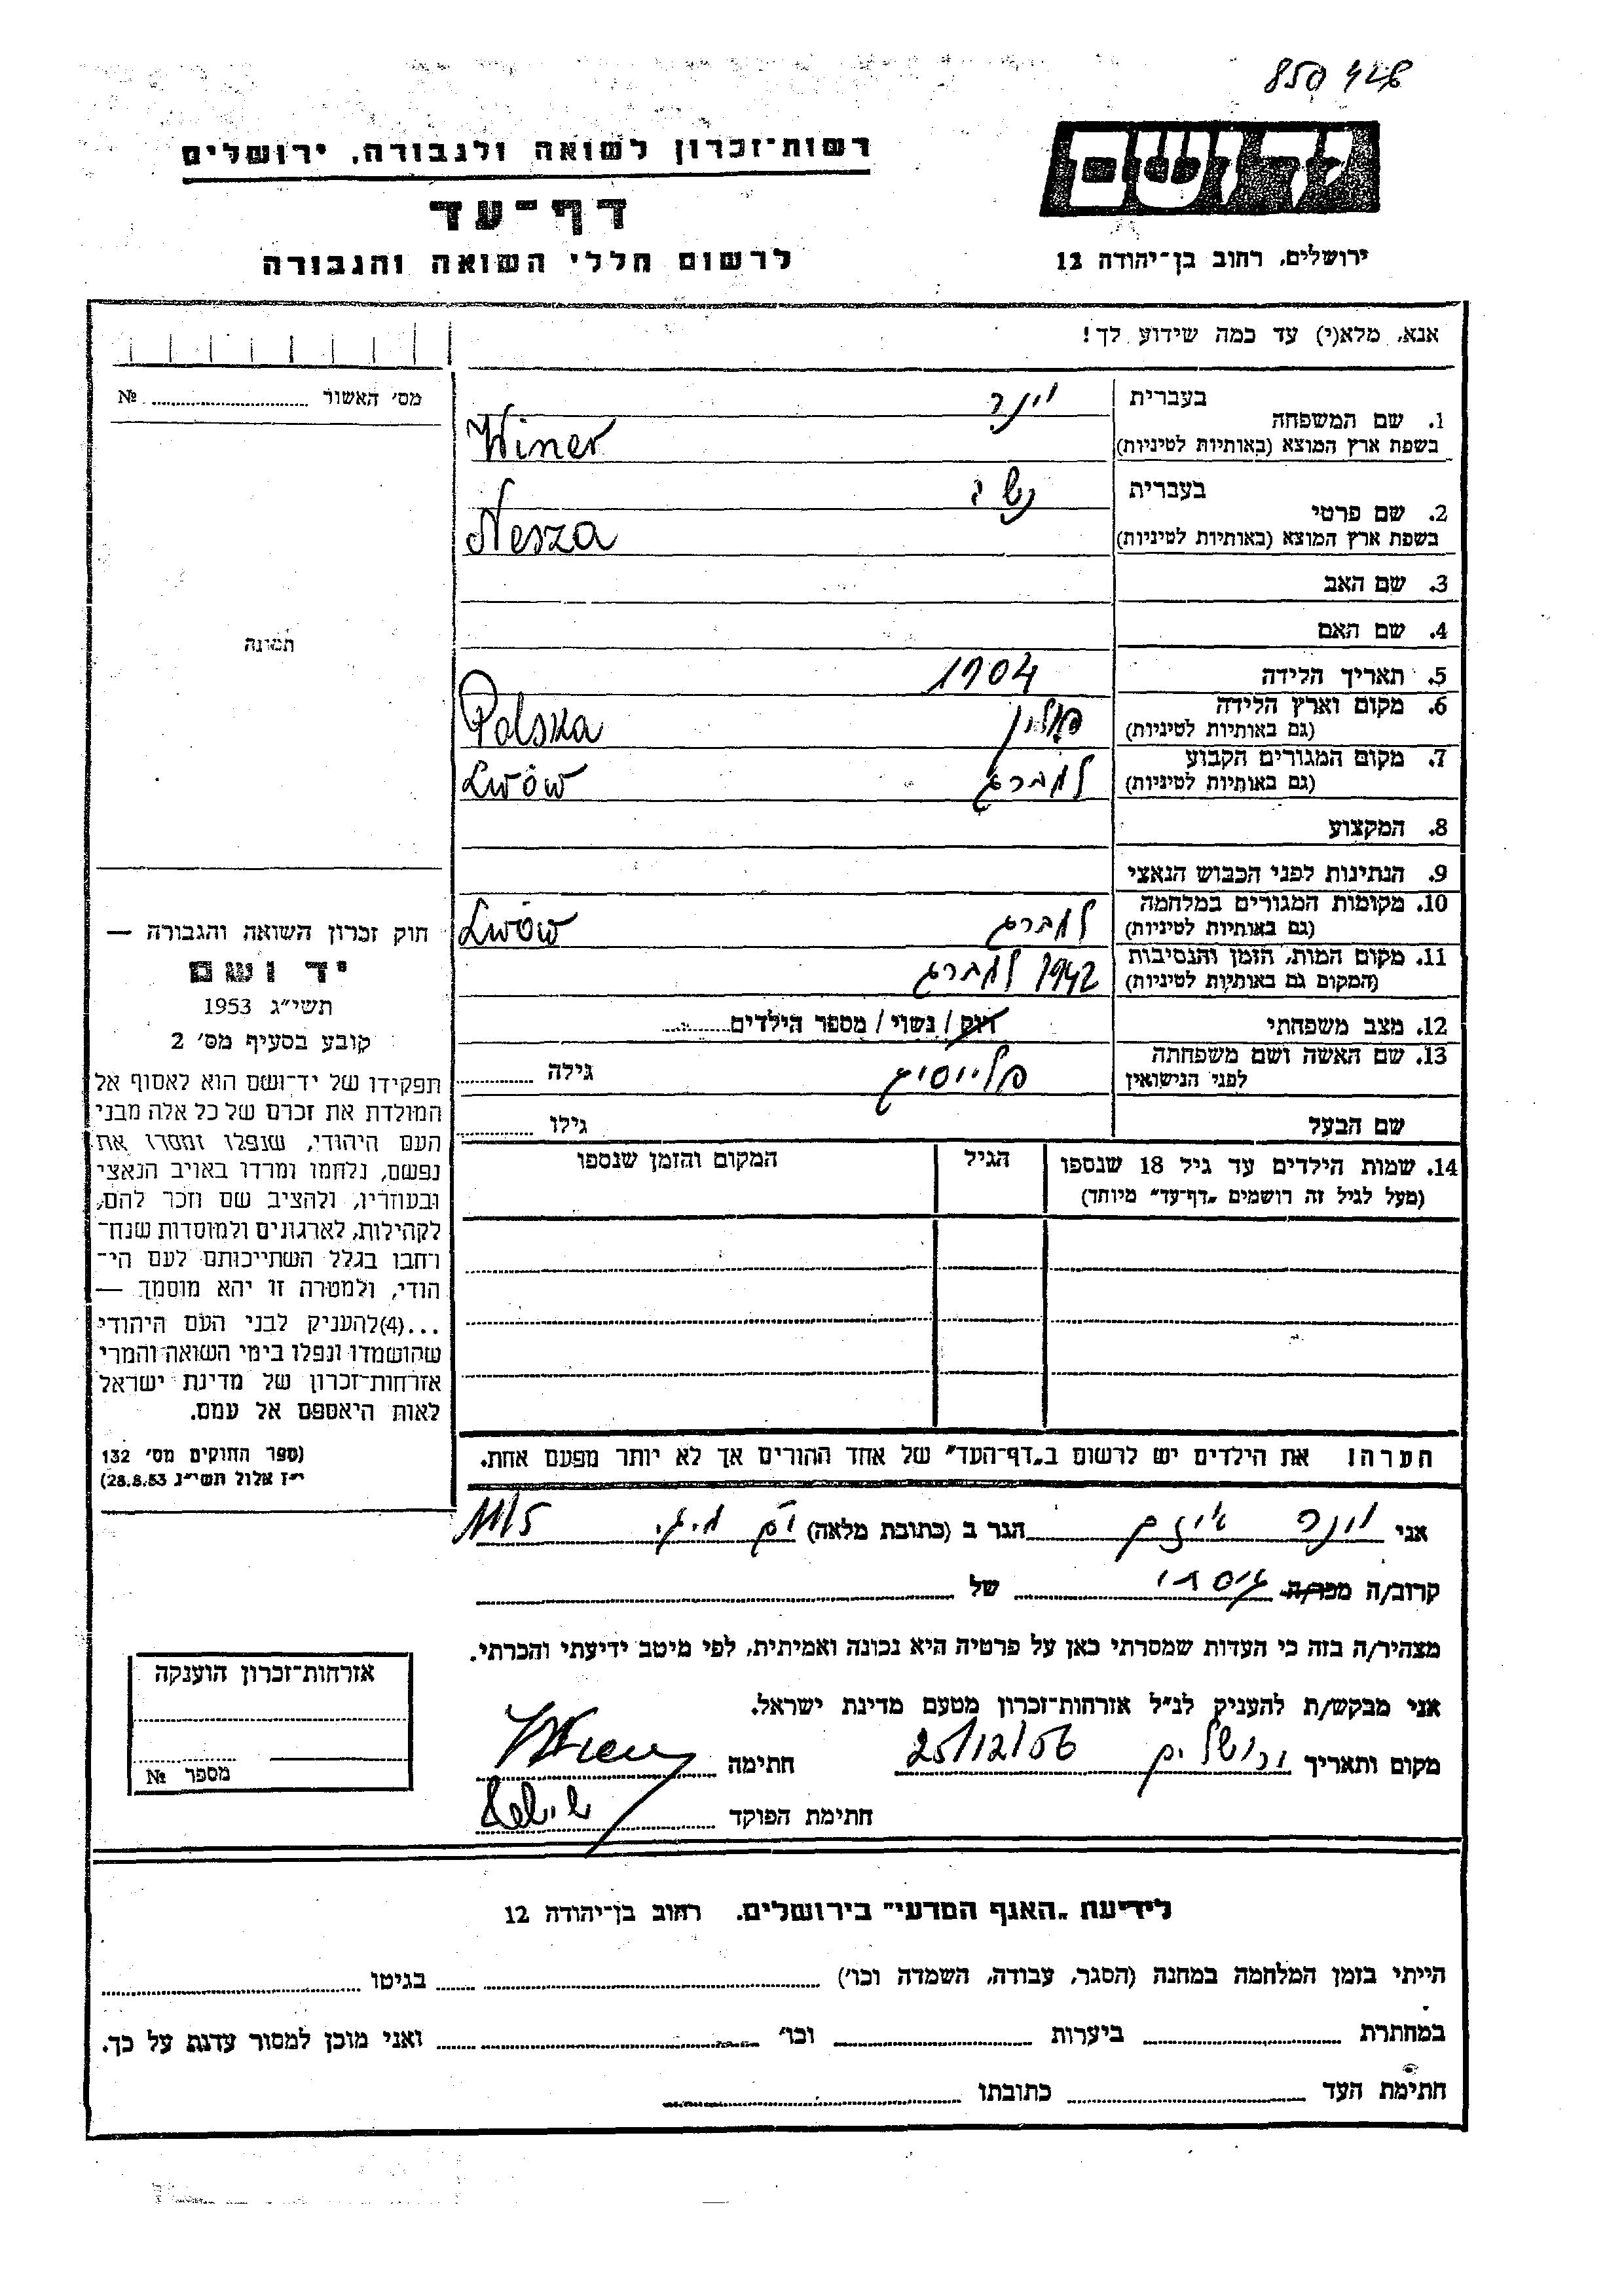 850448
רשות־זכרון לשואה ולגבורה, ירושלים
יד ושם
דף־עד
לרשום חללי השואה והגבורה
ירושלים, רחוב בן־יהודה 12
אנא, מלא(י) עד כמה שידוע לך!
מס׳ האשור № 
1. שם המשפחה
בעברית וינר
בשפת ארץ המוצא (באותיות לטיניות) Winer
2. שם פרטי
בעברית נשה
בשפת ארץ המוצא (באותיות לטיניות) Nesza
3. שם האב
4. שם האם
תמונה
5. תאריך הלידה 1904
6. מקום וארץ הלידה פולין Polska
(גם באותיות לטיניות)
7. מקום המגורים הקבוע למברג Lwów
(גם באותיות לטיניות)
8. המקצוע
9. הנתינות לפני הכבוש הנאצי
10. מקומות המגורים במלחמה למברג Lwów
(גם באותיות לטיניות)
11. מקום המות, הזמן והנסיבות 1942 למברג
(המקום גם באותיות לטיניות)
12. מצב משפחתי רווק / נשוי / מספר הילדים
13. שם האשה ושם משפחתה
לפני הנישואין גילה
שם הבעל גילו
14. שמות הילדים עד גיל 18 שנספו הגיל המקום והזמן שנספו
(מעל לגיל זה רושמים „דף־עד״ מיוחד)
חוק זכרון השואה והגבורה —
יד ושם
תשי״ג 1953
קובע בסעיף מס׳ 2
תפקידו של יד־ושם הוא לאסוף אל
המולדת את זכרם של כל אלה מבני
העם היהודי, שנפלו ומסרו את
נפשם, נלחמו ומרדו באויב הנאצי
ובעוזריו, ולהציב שם וזכר להם,
לקהילות, לארגונים ולמוסדות שנח־
רחבו בגלל השתייכותם לעם הי־
הודי, ולמטרה זו יהא מוסמך —
...(4)להעניק לבני העם היהודי
שהושמדו ונפלו בימי השואה והמרי
אזרחות־זכרון של מדינת ישראל
לאות היאספם אל עמם.
(ספר החוקים מס׳ 132
י״ז אלול תשי״ג 28.8.53)
הערה! את הילדים יש לרשום ב„דף־העד״ של אחד ההורים אך לא יותר מפעם אחת.
אני וינר הגר ב (כתובת מלאה)
קרוב/ה מכר/ה גיסתי של
מצהיר/ה בזה כי העדות שמסרתי כאן על פרטיה היא נכונה ואמיתית, לפי מיטב ידיעתי והכרתי.
אני מבקש/ת להעניק לנ״ל אזרחות־זכרון מטעם מדינת ישראל.
מקום ותאריך ירושלים 25/12/56 חתימה
חתימת הפוקד
אזרחות־זכרון הוענקה
מספר №
לידיעת „האגף המדעי״ בירושלים. רחוב בן־יהודה 12
הייתי בזמן המלחמה במחנה (הסגר, עבודה, השמדה וכו׳) בגיטו
במחתרת ביערות וכו׳ ואני מוכן למסור עדות על כך.
חתימת העד כתובתו